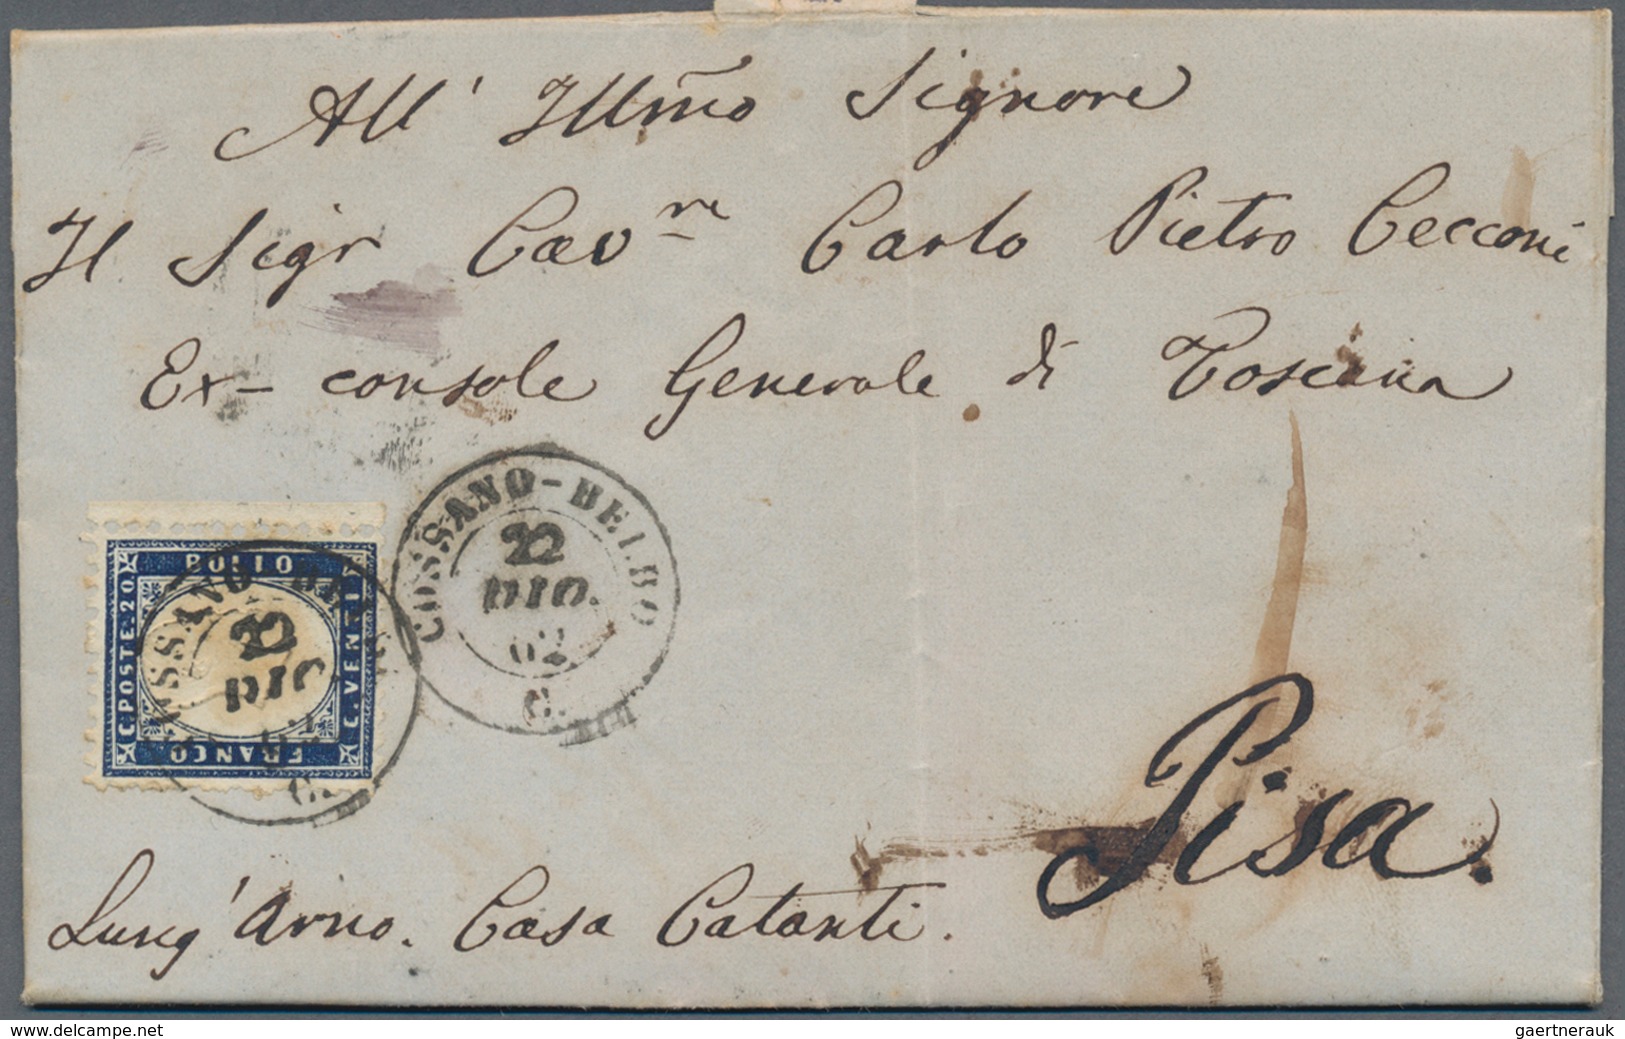 All' Illmo Signore
Il Sigr Cavre Carlo Pietro Cecconi
Ex-console Generale di Toscana
COSSANO-BELBO
22
DIC.
62
C.
BOLLO
C. POSTE. 20
C. VENTI
FRANCO
22
DIC
62
C.
Pisa.
Lung'Arno. Casa Catanti.
www.delcampe.net
gaertnerauk